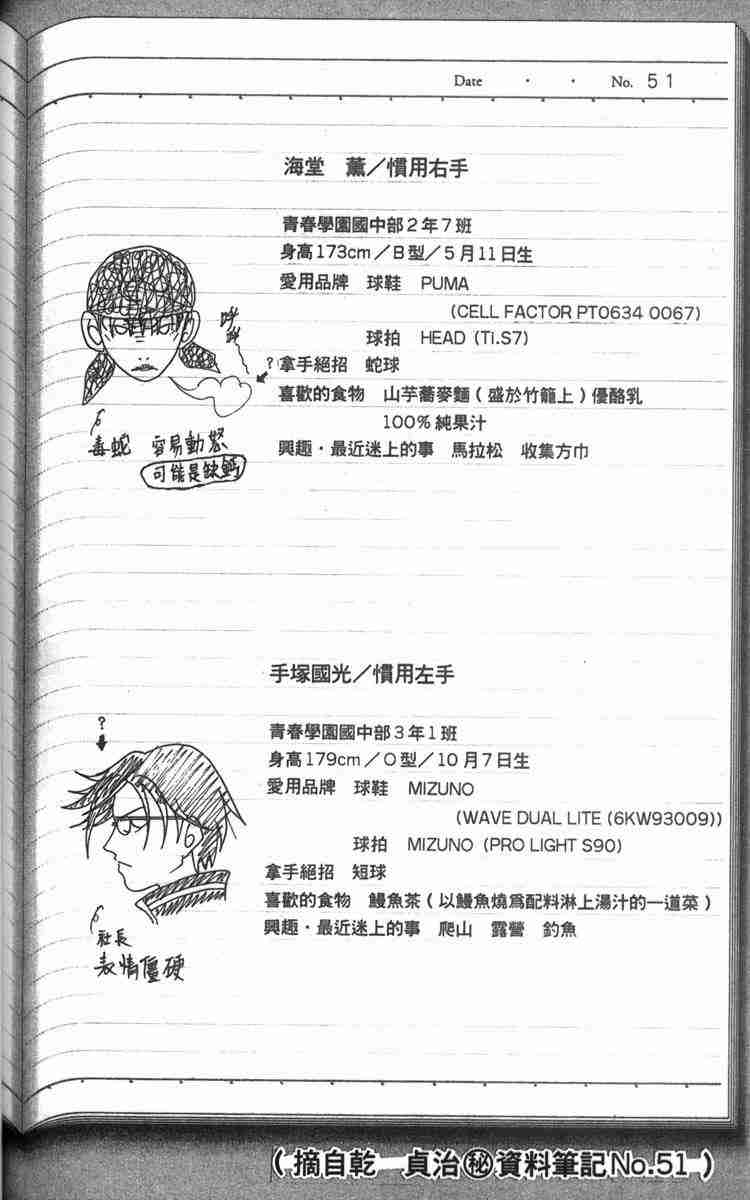 Date ・ ・ No. 51
海堂 薰／慣用右手
青春學園國中部2年7班
身高173cm／B型／5月11日生
愛用品牌 球鞋 PUMA
(CELL FACTOR PT0634 0067)
球拍 HEAD (Ti.S7)
拿手絕招 蛇球
喜歡的食物 山芋蕎麥麵(盛於竹籠上)優酪乳
100%純果汁
興趣・最近迷上的事 馬拉松 收集方巾
呼
呼
?
毒蛇 容易動怒
可能是缺鈣
手塚國光／慣用左手
青春學園國中部3年1班
身高179cm／O型／10月7日生
愛用品牌 球鞋 MIZUNO
(WAVE DUAL LITE (6KW93009))
球拍 MIZUNO (PRO LIGHT S90)
拿手絕招 短球
喜歡的食物 鰻魚茶(以鰻魚燒爲配料淋上湯汁的一道菜)
興趣・最近迷上的事 爬山 露營 釣魚
?
社長
表情僵硬
(摘自乾 貞治㊙資料筆記No.51)